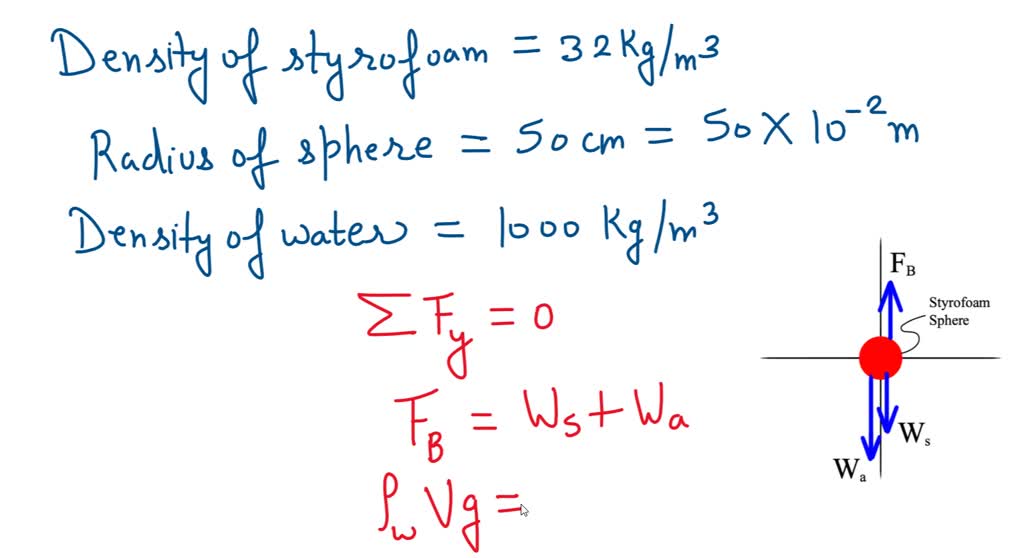 Density of styrofoam = 32 Kg/m³
Radius of sphere = 50 cm = 50 × 10⁻² m
Density of water = 1000 Kg/m³
∑ F_y = 0
F_B = W_s + W_a
ρ_w V g =
F_B
Styrofoam
Sphere
W_s
W_a